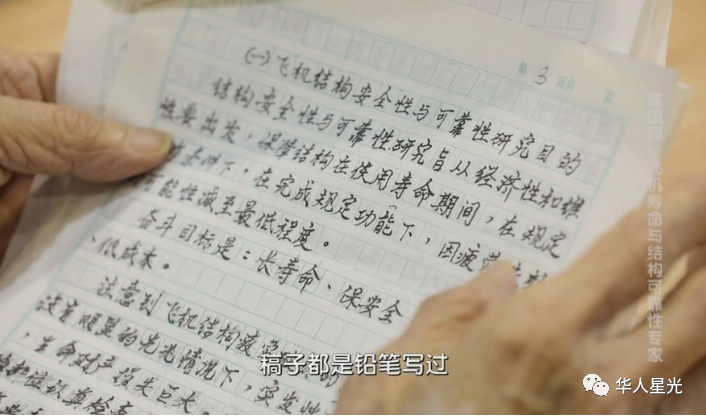 第 3 页共 页
(一)飞机结构安全性与可靠性研究目的
结构安全性与可靠性研究旨从经济性和维
性要出发,保障结构在使用寿命期间,在规定
条件下,在完成规定功能下,因疲劳
可能性减至最低程度。
奋斗目标是:长寿命、保安全
、低成本。
注意到飞机结构疲劳
的先兆情况下,突发性
,生命财产损失巨大
飞机寿命与结构可靠性专家
稿子都是铅笔写过
华人星光